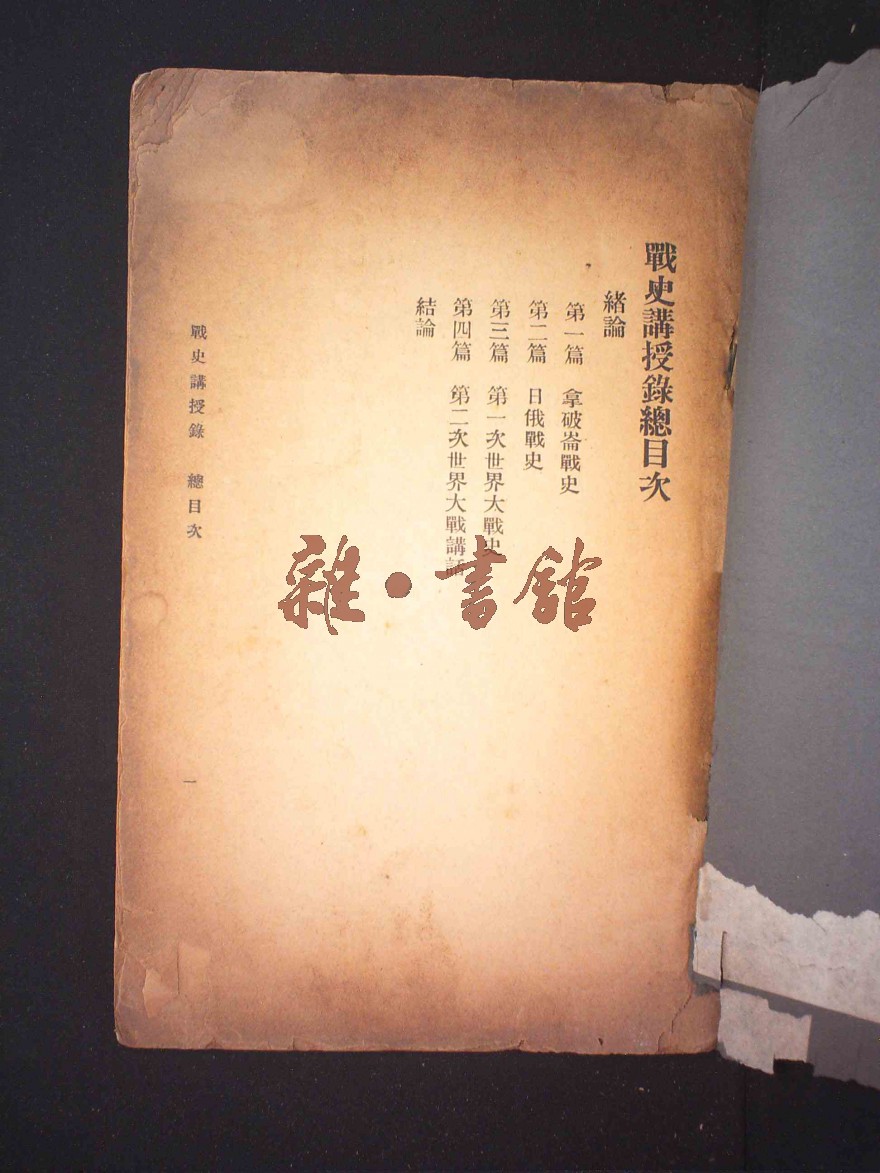 戰史講授錄總目次
緒論
第一篇 拿破崙戰史
第二篇 日俄戰史
第三篇 第一次世界大戰史
第四篇 第二次世界大戰講話
結論
戰史講授錄 總目次
一
雜·書館